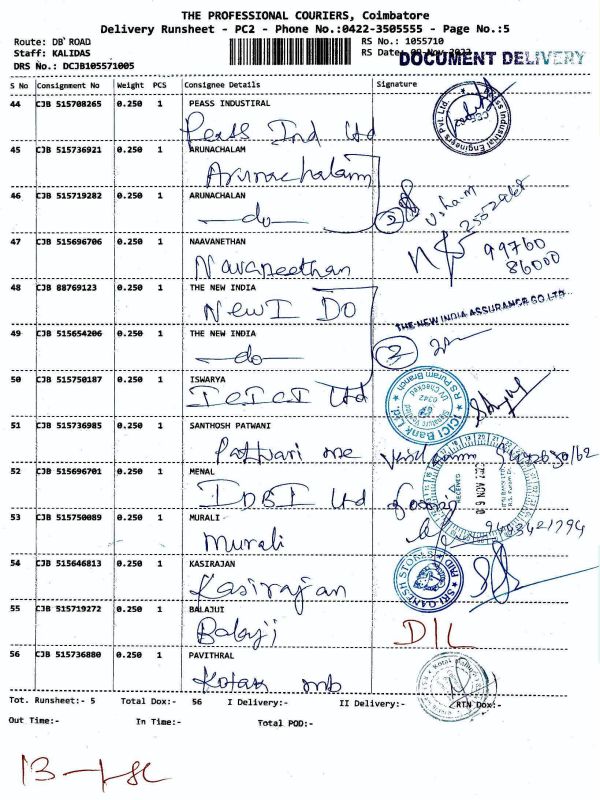 THE PROFESSIONAL COURIERS, Coimbatore
Delivery Runsheet - PC2 - Phone No.:0422-3505555 - Page No.:5
Route: DB ROAD
RS No.: 1055710
Staff: KALIDAS
RS Date:
DOCUMENT DELIVERY
DRS No.: DCJB105571005
S No Consignment No Weight PCS Consignee Details Signature
44 CJB 515708265 0.250 1 PEASS INDUSTIRAL
Peass Ind Ltd
45 CJB 515736921 0.250 1 ARUNACHALAM
Arunachalam
46 CJB 515719282 0.250 1 ARUNACHALAN
do
2552868
47 CJB 515696706 0.250 1 NAAVANETHAN
Navaneethan
99760
86000
48 CJB 88769123 0.250 1 THE NEW INDIA
New I DO
THE NEW INDIA ASSURANCE CO.LTD.
49 CJB 515654206 0.250 1 THE NEW INDIA
do
2
50 CJB 515750187 0.250 1 ISWARYA
ICICI Ltd
ICICI Bank Ltd
R S Puram Branch
51 CJB 515736985 0.250 1 SANTHOSH PATWANI
Pattwari
52 CJB 515696701 0.250 1 MENAL
IDBI Ltd
53 CJB 515750089 0.250 1 MURALI
Murali
54 CJB 515646813 0.250 1 KASIRAJAN
Kasirajan
SRI GANESH STORES
55 CJB 515719272 0.250 1 BALAJUI
Balaji
D/L
56 CJB 515736880 0.250 1 PAVITHRAL
Kotak mb
Tot. Runsheet:- 5 Total Dox:- 56 I Delivery:- II Delivery:- RTN Dox:-
Out Time:- In Time:- Total POD:-